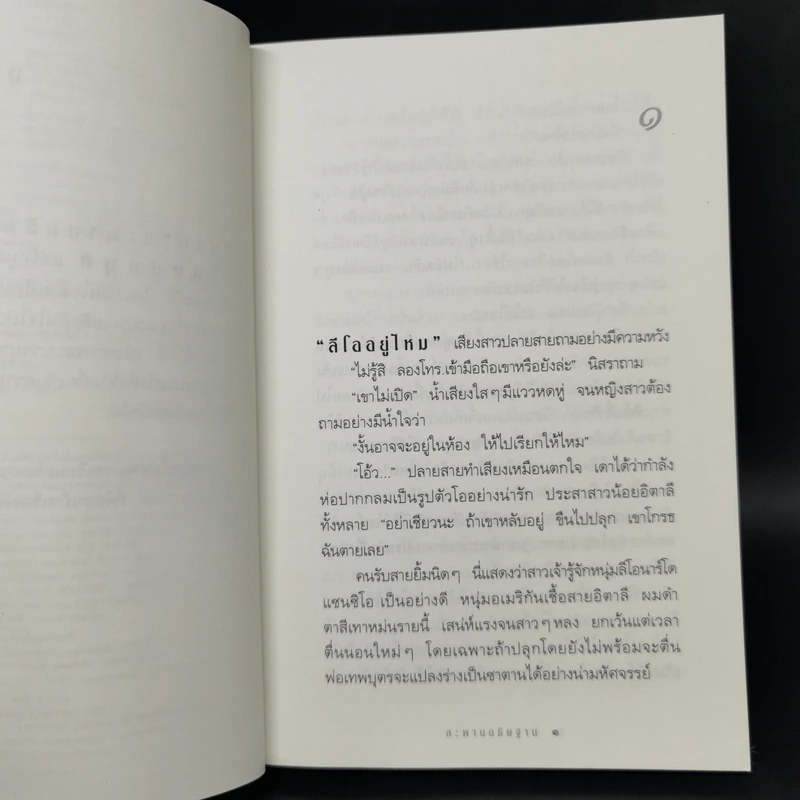 ๑
“ลีโออยู่ไหม” เสียงสาวปลายสายถามอย่างมีความหวัง
“ไม่รู้สิ ลองโทร.เข้ามือถือเขาหรือยังล่ะ” นิสราถาม
“เขาไม่เปิด” น้ำเสียงใสๆ มีแววหดหู่ จนหญิงสาวต้อง
ถามอย่างมีน้ำใจว่า
“งั้นอาจจะอยู่ในห้อง ให้ไปเรียกให้ไหม”
“โอ้ว...” ปลายสายทำเสียงเหมือนตกใจ เดาได้ว่ากำลัง
ห่อปากกลมเป็นรูปตัวโออย่างน่ารัก ประสาสาวน้อยอิตาลี
ทั้งหลาย “อย่าเชียวนะ ถ้าเขาหลับอยู่ ขืนไปปลุก เขาโกรธ
ฉันตายเลย”
คนรับสายยิ้มนิดๆ นี่แสดงว่าสาวเจ้ารู้จักหนุ่มลีโอนาร์โด
แซนซิโอ เป็นอย่างดี หนุ่มอเมริกันเชื้อสายอิตาลี ผมดำ
ตาสีเทาหม่นรายนี้ เสน่ห์แรงจนสาวๆ หลง ยกเว้นแต่เวลา
ตื่นนอนใหม่ๆ โดยเฉพาะถ้าปลุกโดยยังไม่พร้อมจะตื่น
พ่อเทพบุตรจะแปลงร่างเป็นซาตานได้อย่างน่ามหัศจรรย์
สะพานอธิษฐาน ๑